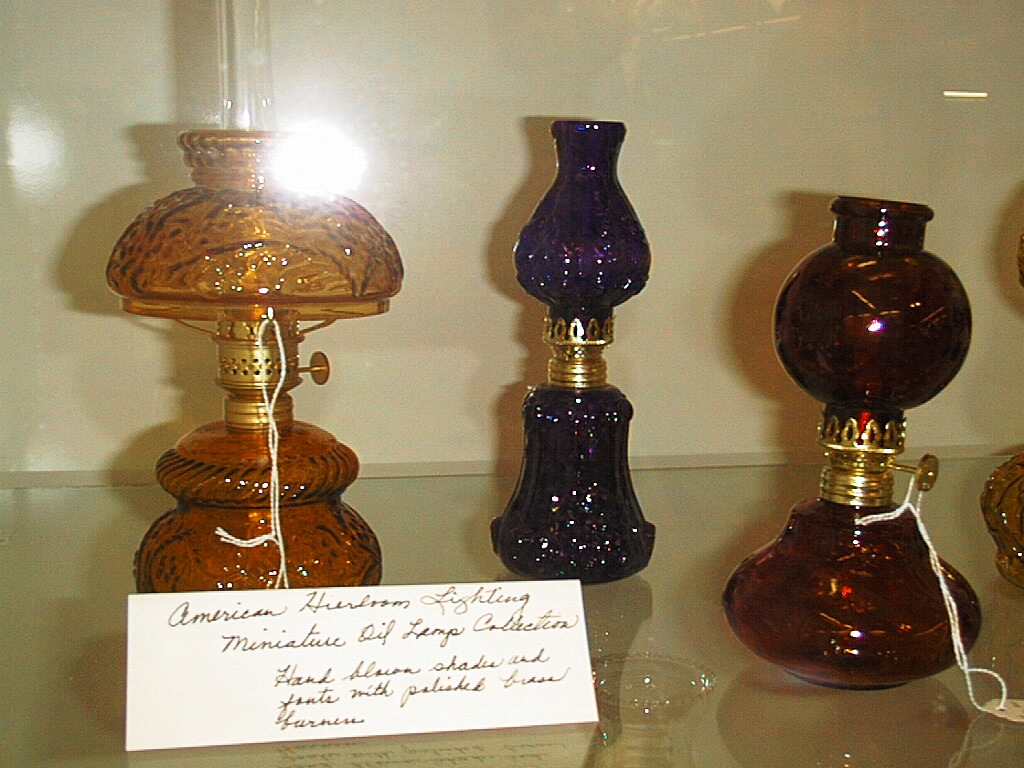 American Hierloom Lighting
Miniature Oil Lamp Collection
Hand blown shades and
fonts with polished brass
burners